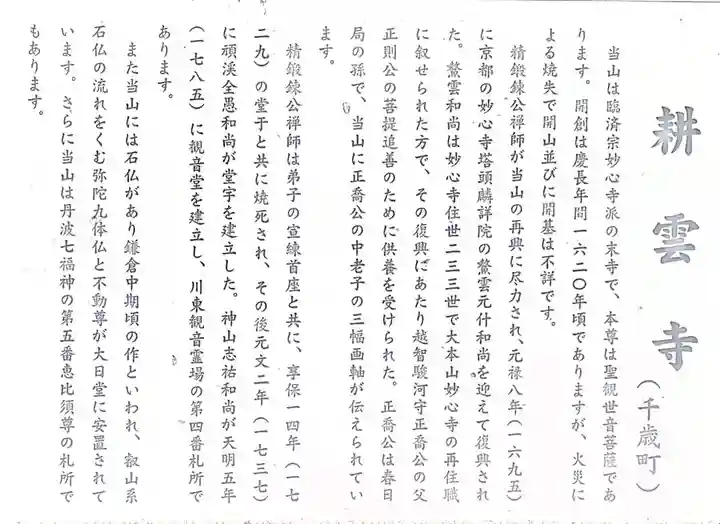 耕雲寺
(千歳町)
当山は臨済宗妙心寺派の末寺で、本尊は聖観世音菩薩であ
ります。開創は慶長年間一六二〇年頃でありますが、火災に
よる焼失で開山並びに開基は不詳です。
精鍛錬公禅師が当山の再興に尽力され、元禄八年(一六九五)
に京都の妙心寺塔頭麟詳院の鰲雲元什和尚を迎えて復興され
た。鰲雲和尚は妙心寺住世二三三世で大本山妙心寺の再住職
に叙せられた方で、その復興にあたり越智駿河守正喬公の父
正則公の菩提追善のために供養を受けられた。正喬公は春日
局の孫で、当山に正喬公の中老子の三幅画軸が伝えられてい
ます。
精鍛錬公禅師は弟子の宣練首座と共に、享保一四年(一七
二九)の堂于と共に焼死され、その後元文二年(一七三七)
に頑渓全愚和尚が堂字を建立した。神山志祐和尚が天明五年
(一七八五)に観音堂を建立し、川東観音霊場の第四番札所で
あります。
また当山には石仏があり鎌倉中期頃の作といわれ、叡山系
石仏の流れをくむ弥陀九体仏と不動尊が大日堂に安置されて
います。さらに当山は丹波七福神の第五番恵比須尊の札所で
もあります。